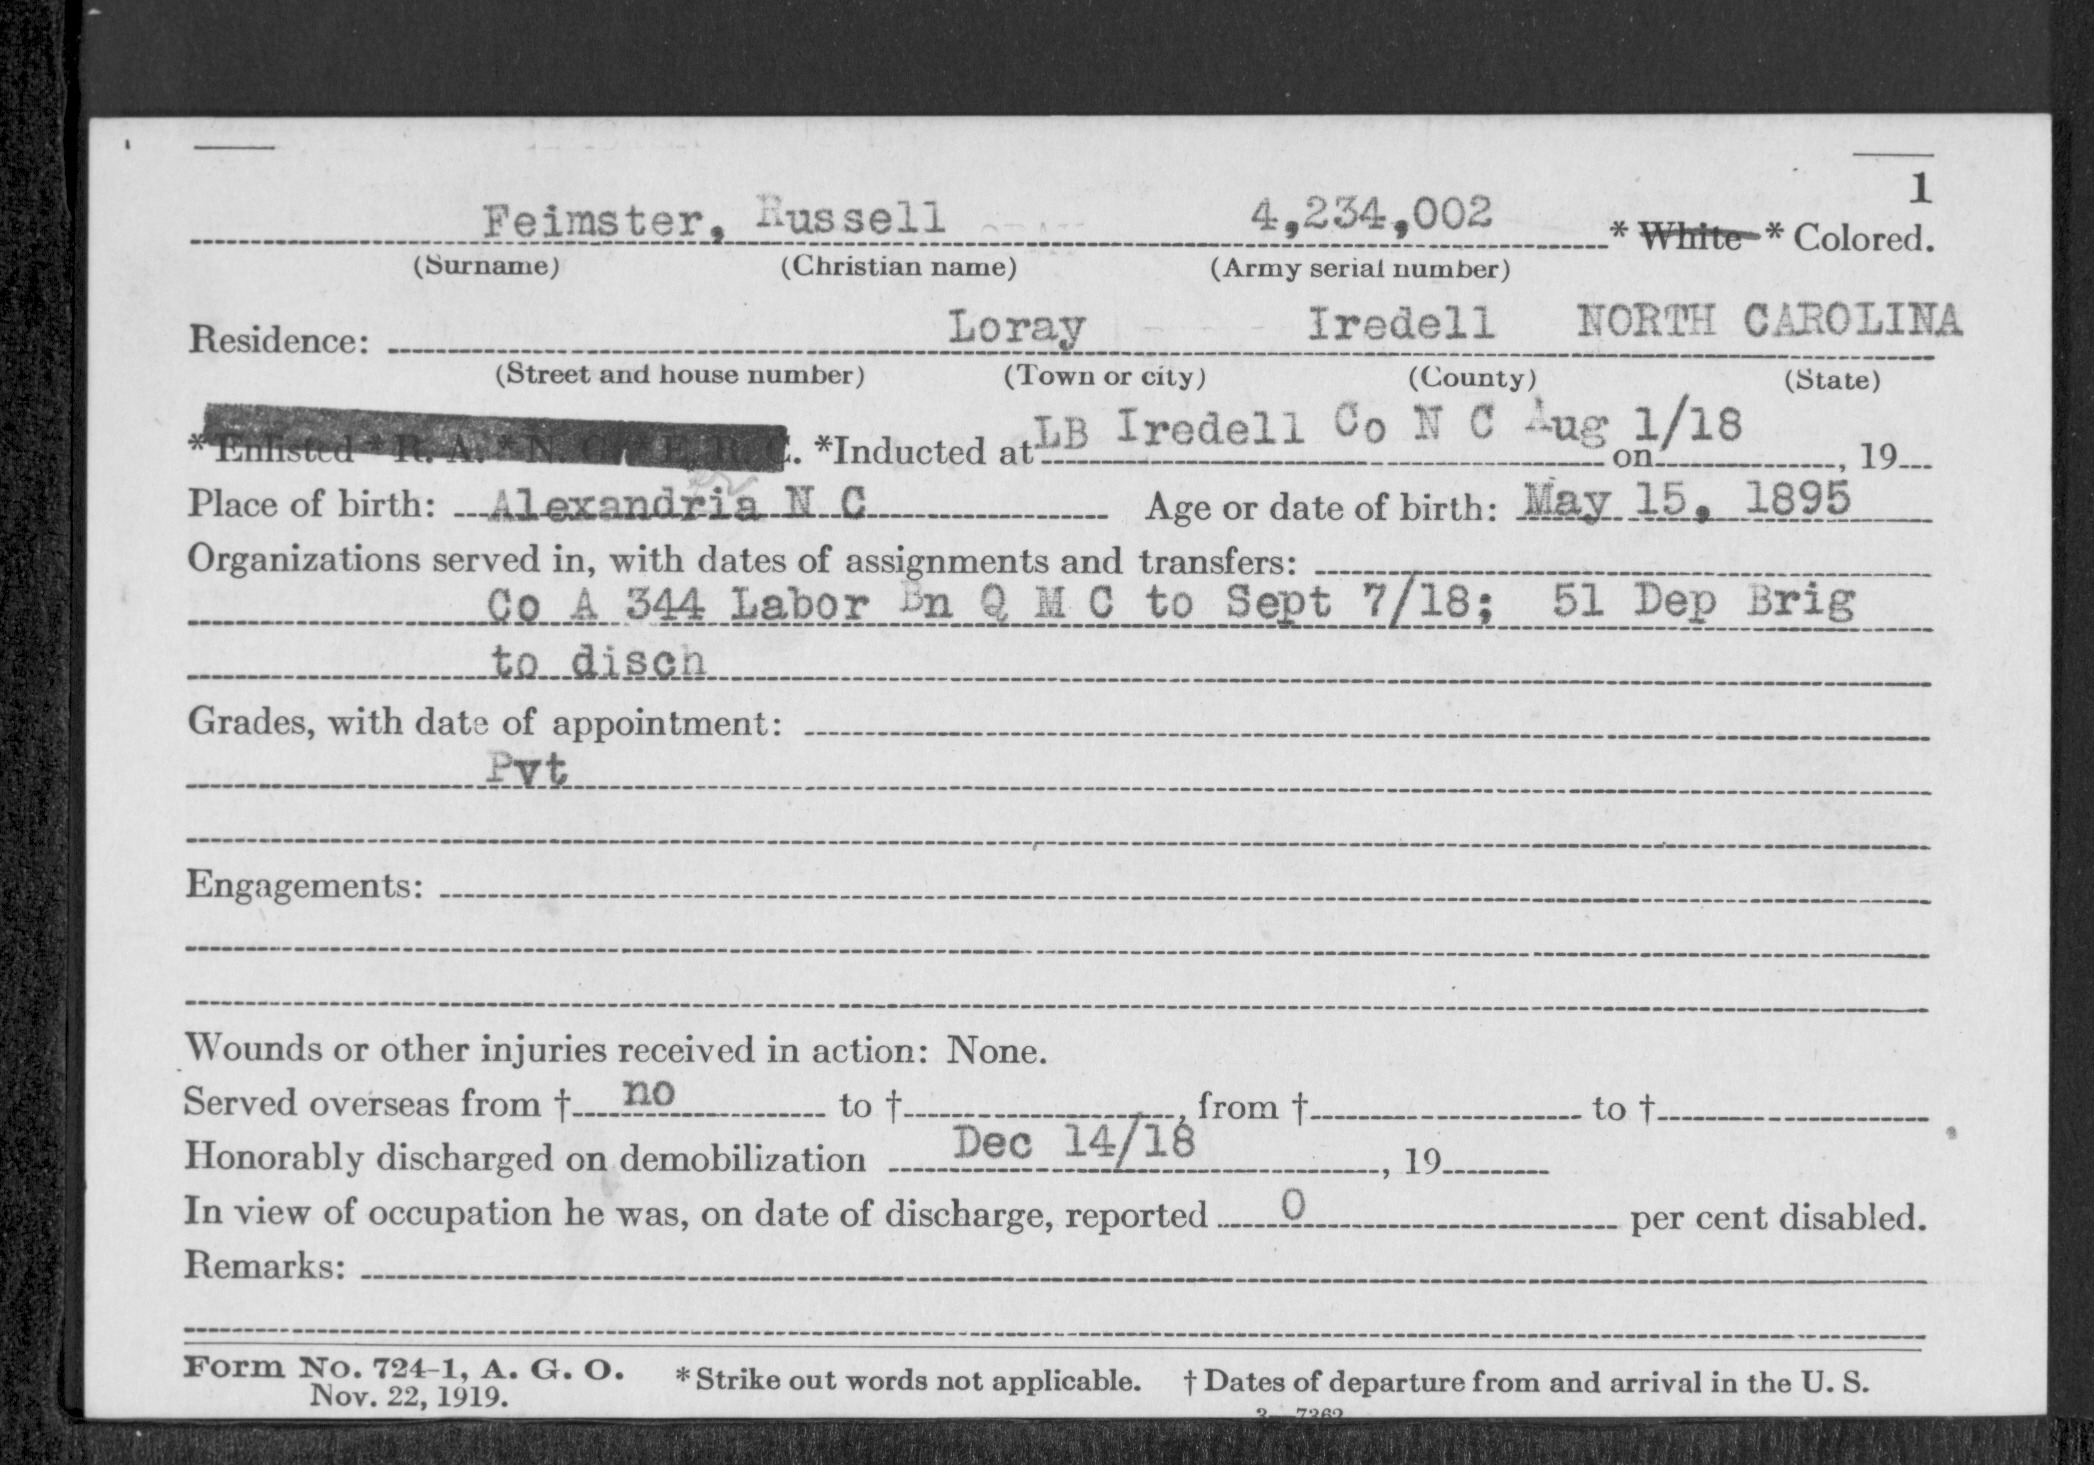 1
Feimster, Russell 4,234,002 * White * Colored.
(Surname) (Christian name) (Army serial number)
Residence: Loray Iredell NORTH CAROLINA
(Street and house number) (Town or city) (County) (State)
*Enlisted * R. A. * N. G. * E. R. C. *Inducted at LB Iredell Co N C Aug 1/18 on , 19
Place of birth: Alexandria N C Age or date of birth: May 15, 1895
Organizations served in, with dates of assignments and transfers:
Co A 344 Labor Bn Q M C to Sept 7/18; 51 Dep Brig
to disch
Grades, with date of appointment:
Pvt
Engagements:
Wounds or other injuries received in action: None.
Served overseas from † no to † , from † to †
Honorably discharged on demobilization Dec 14/18 , 19
In view of occupation he was, on date of discharge, reported 0 per cent disabled.
Remarks:
Form No. 724-1, A. G. O. * Strike out words not applicable. † Dates of departure from and arrival in the U. S.
Nov. 22, 1919.
3—7262